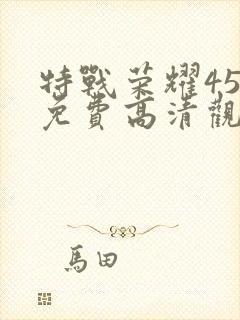 特戰荣耀45
免費高清觀
馬田